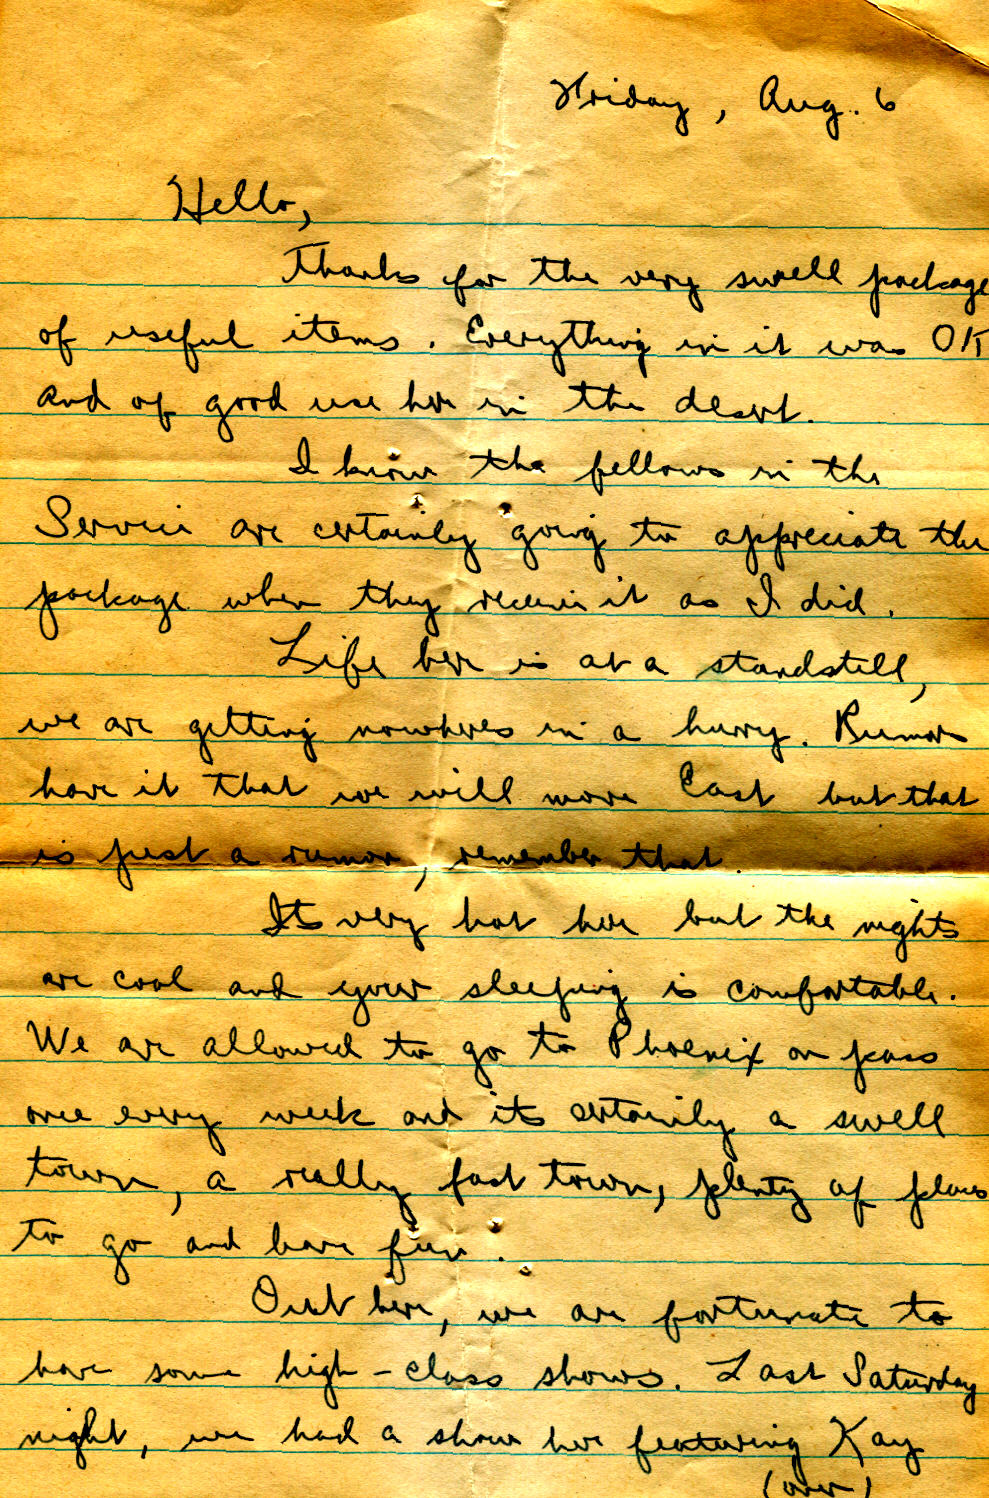 Friday, Aug. 6
Hello,
Thanks for the very swell package
of useful items. Everything in it was OK
and of good use here in the desert.
I know the fellows in the
Service are certainly going to appreciate the
package when they receive it as I did.
Life here is at a standstill,
we are getting nowheres in a hurry. Rumors
have it that we will move East but that
is just a rumor, remember that.
Its very hot here but the nights
are cool and your sleeping is comfortable.
We are allowed to go to Phoenix on pass
once every week and its certainly a swell
town, a really fast town, plenty of places
to go and have fun.
Out here, we are fortunate to
have some high-class shows. Last Saturday
night, we had a show here featuring Kay
(over)